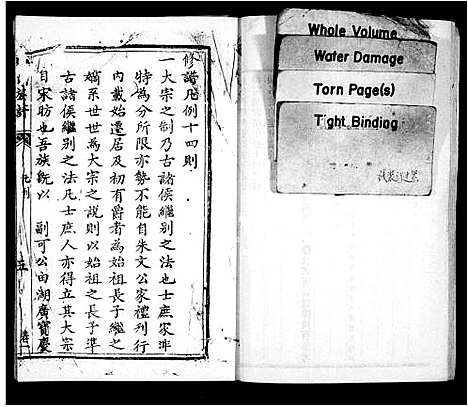 修譜凡例十四則
一大宗之制乃古諸侯繼别之法也士庶家非
特為分所限亦勢不能自朱文公家禮刊行
内載始遷居及初有爵者為始祖長子繼之
嫡系世世為大宗之說則以始祖之長子準
古諸侯繼别之法凡士庶人亦得立其大宗
自宋昉也吾族既以 副可公由湖廣寶慶
凡例
五
Whole Volume
Water Damage
Torn Page(s)
Tight Binding